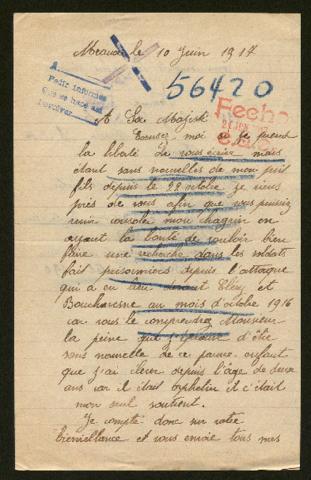 le 10 Juin 1917
A
Pedir informes
56420
Fecha
A Sa Majesté
Excusez moi si je prends
la liberté de vous écrire mais
étant sans nouvelles de mon petit
fils depuis le 22 octobre je viens
près de vous afin que vous puissiez
venir consoler mon chagrin en
ayant la bonté de vouloir bien
faire une recherche dans les soldats
fait prisonniers depuis l'attaque
qui a eu lieu devant et
Bouchavesne au mois d'octobre 1916
car vous le comprendrez Monsieur
la peine que j'éprouve d'être
sans nouvelle de ce jeune enfant
que j'ai élever depuis l'age de deux
ans car il était orphelin et c'était
mon seul soutient.
Je compte donc sur votre
bienveillance et vous envoie tous mes